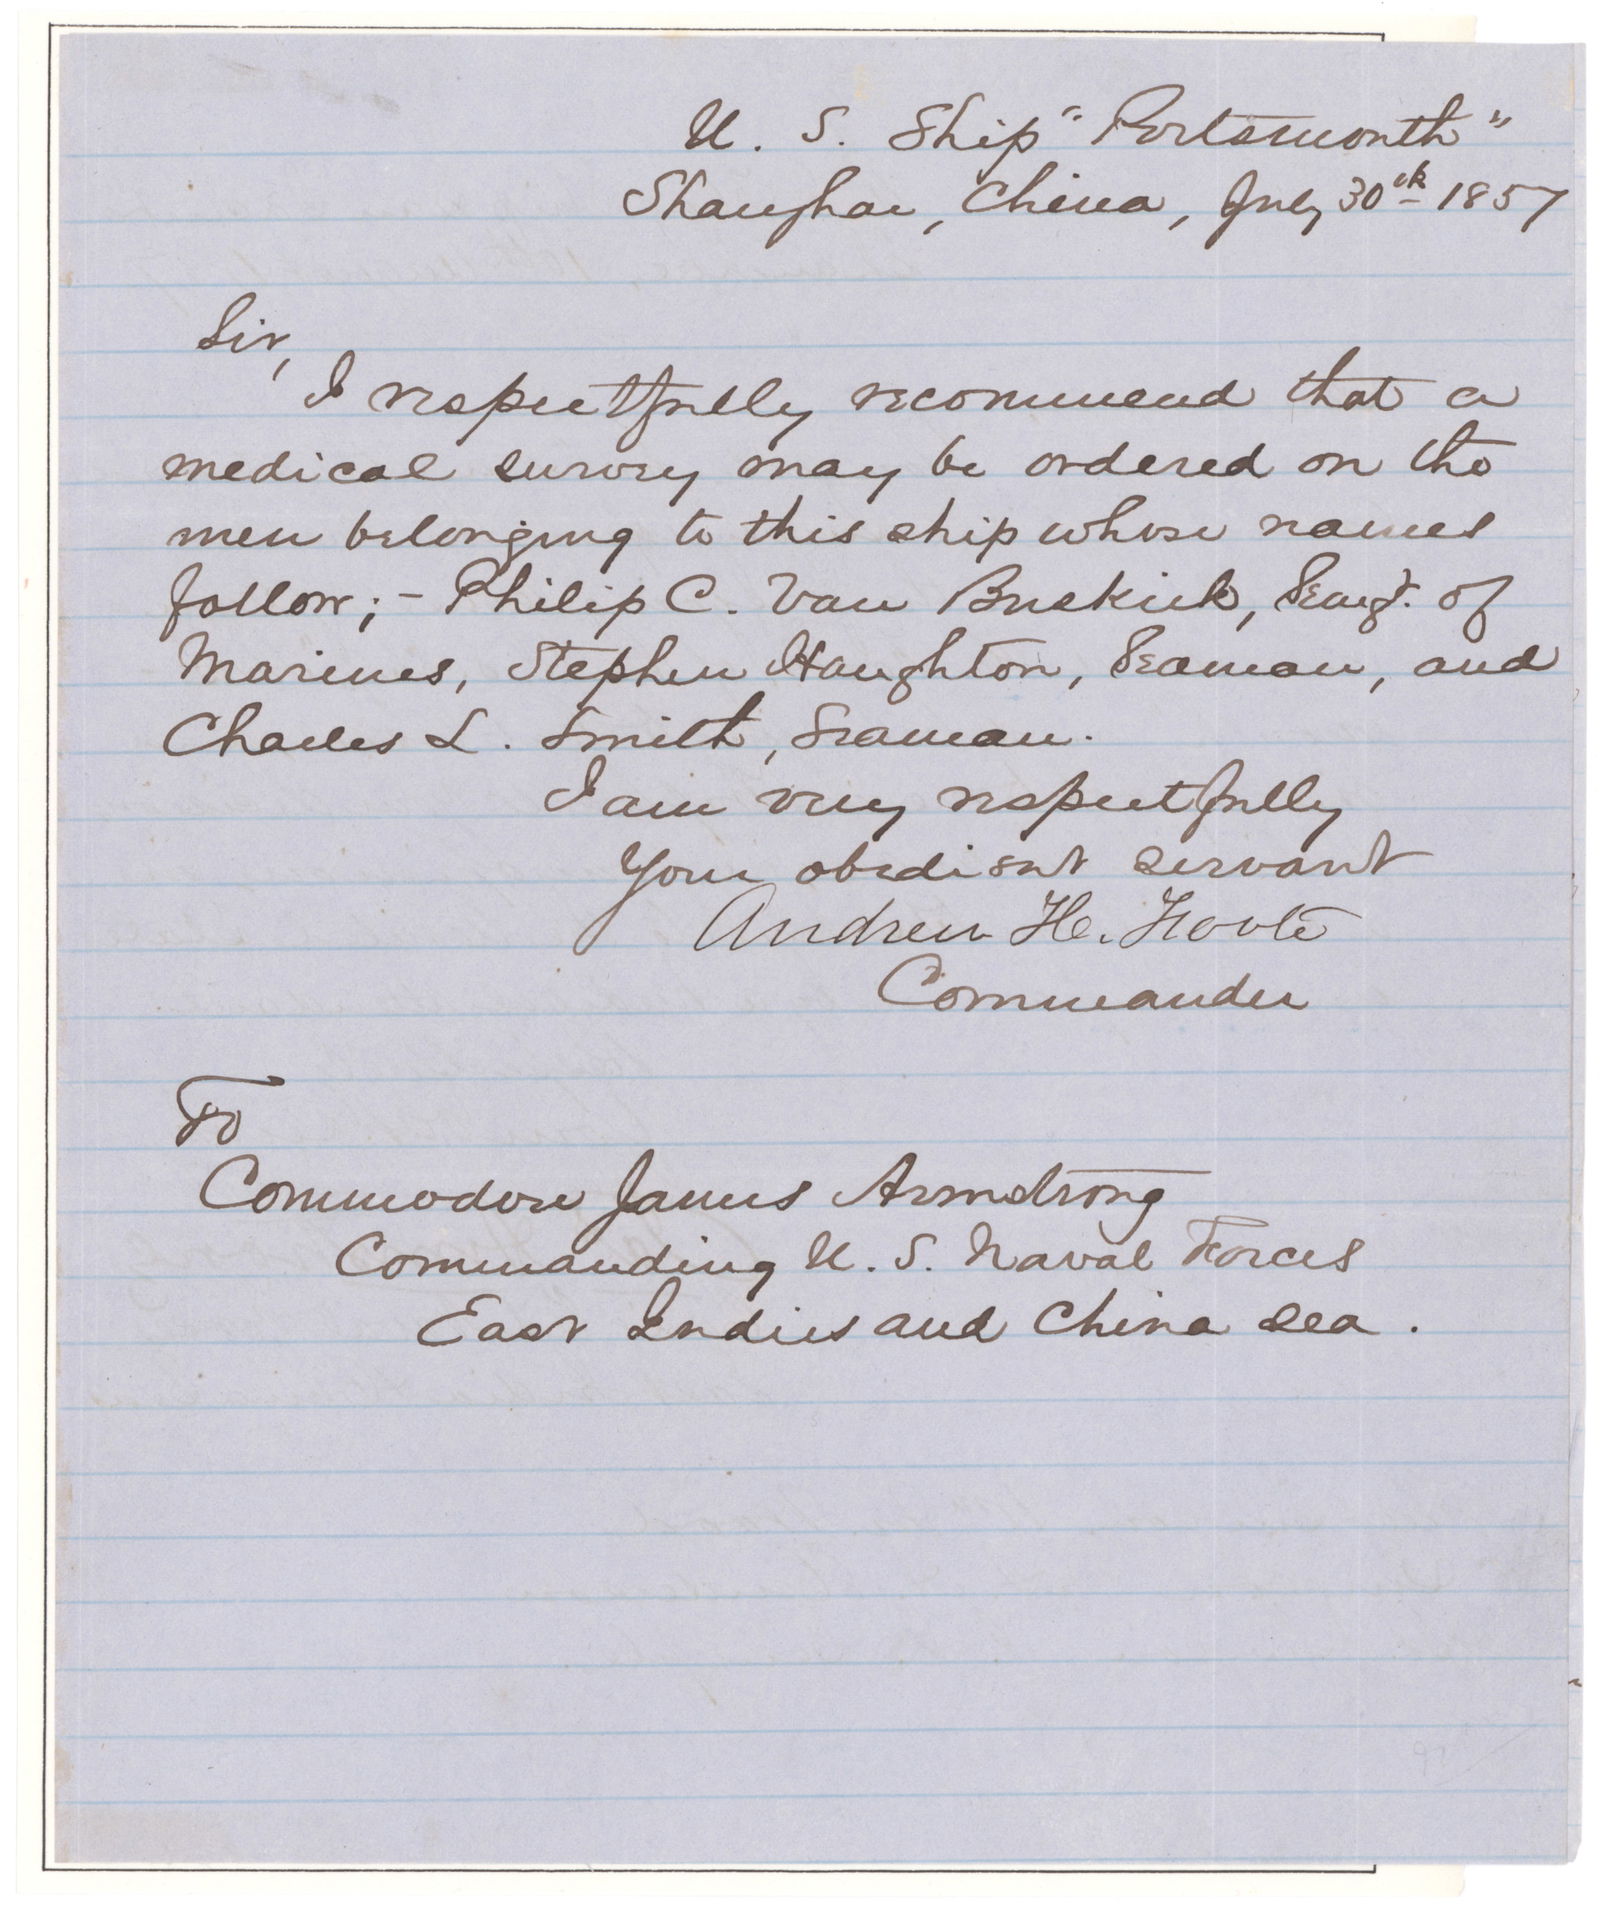 U. S. Ship "Portsmouth"
Shanghae, China, July 30th 1857
Sir,
I respectfully recommend that a
medical survey may be ordered on the
men belonging to this ship whose names
follow; - Philip C. Van Buskirk, Seargt. of
Marines, Stephen Haughton, Seaman, and
Charles L. Smith, Seaman.
I am very respectfully
Your obedient servant
Andrew H. Foote
Commander
To
Commodore James Armstrong
Commanding U. S. Naval Forces
East Indies and China Sea.